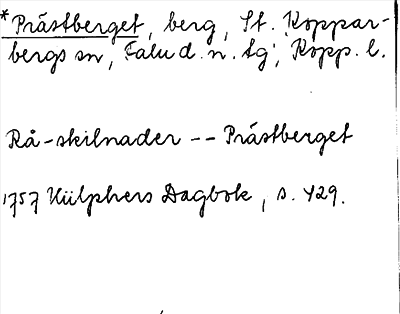 *Prästberget, berg, St. Koppar-
bergs sn, Falu d. n. tg, Kopp. l.
Rå-skilnader -- Prästberget
1757 Hülphers Dagbok, s. 429.